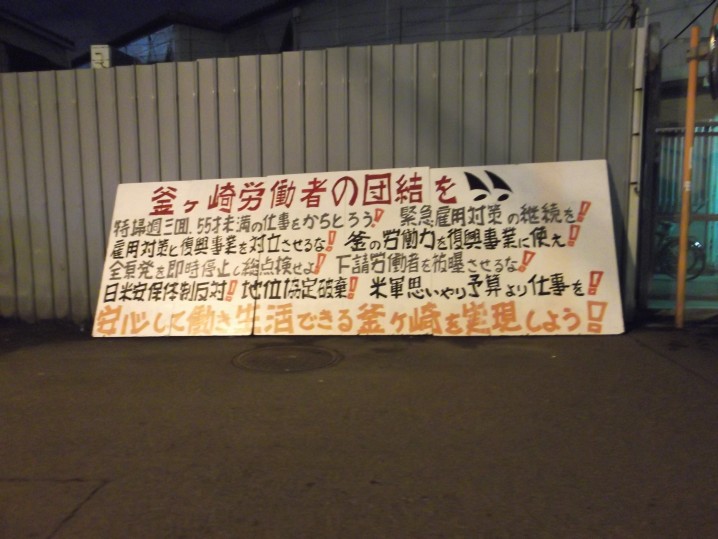 釜ヶ崎労働者の団結を!!
特掃週三回、55才未満の仕事をかちとろう! 緊急雇用対策の継続を!
雇用対策と復興事業を対立させるな! 釜の労働力を復興事業に使え!
全原発を即時停止し総点検せよ! 下請労働者を被曝させるな!
日米安保体制反対! 地位協定破棄! 米軍思いやり予算より仕事を!
安心して働き生活できる釜ヶ崎を実現しよう!